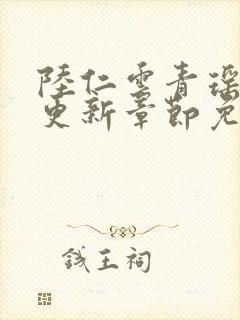 陸仁雲青瑶
更新章節免
錢王祠